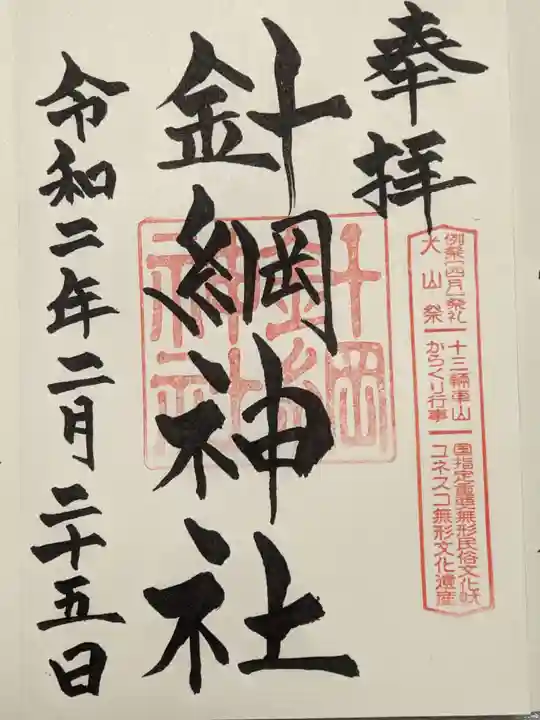 奉拝
例祭[四月]祭礼
犬山祭
十三輌車山
からくり行事
国指定重要無形民俗文化財
ユネスコ無形文化遺産
針綱神社
針綱
神社
令和二年二月二十五日